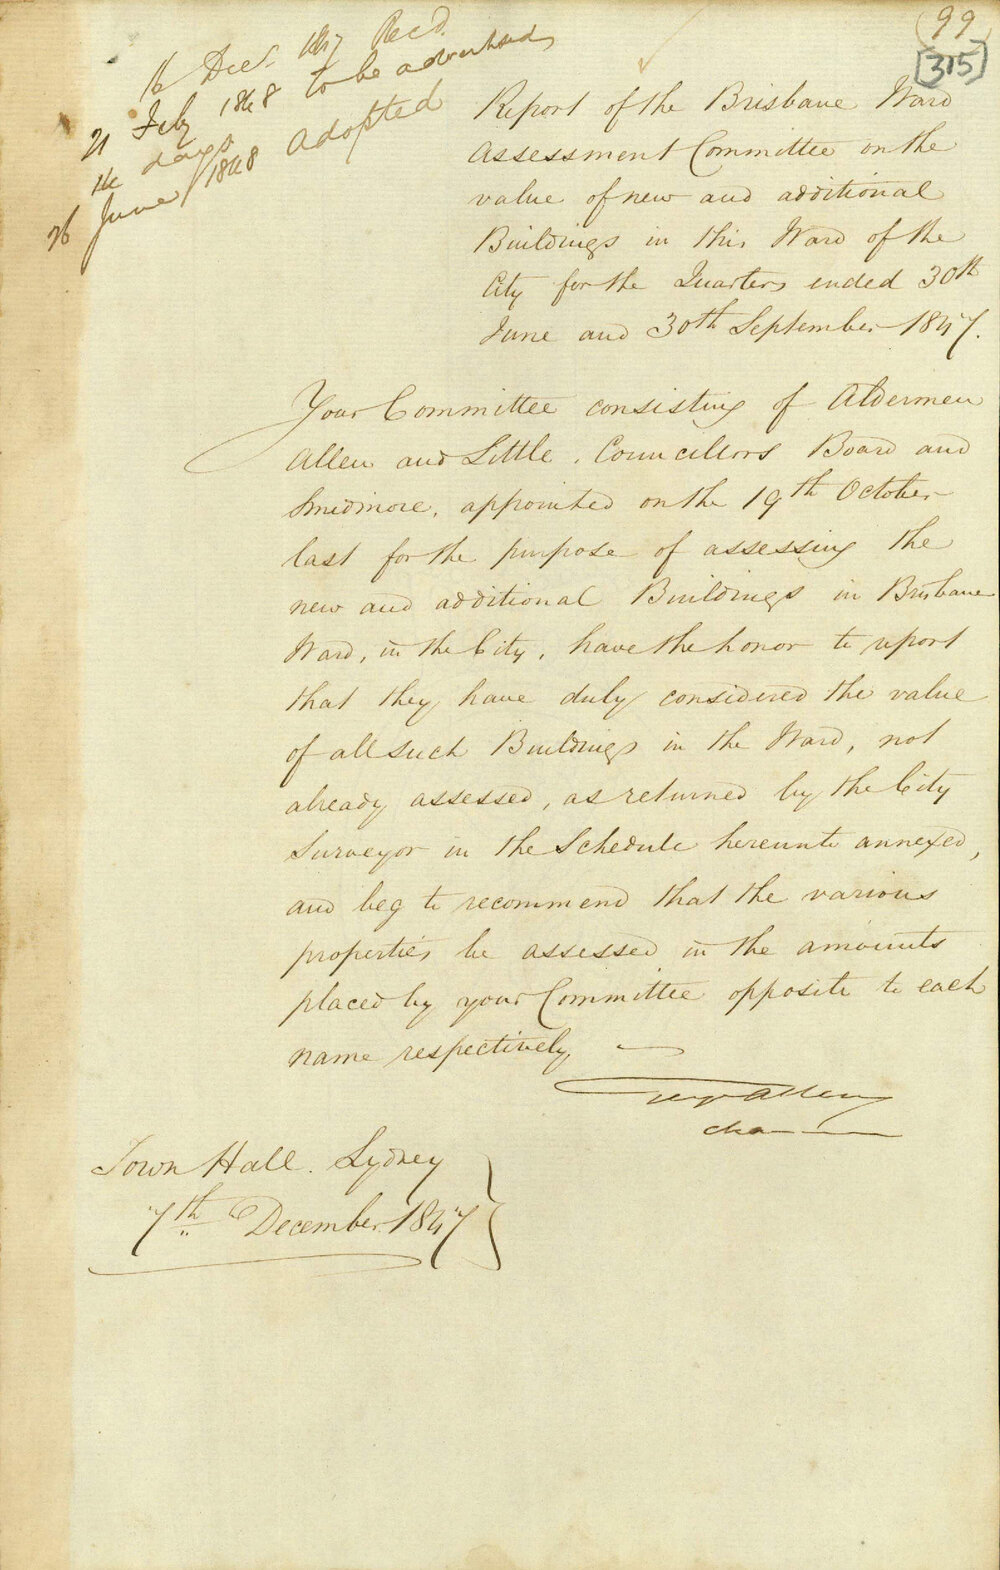 99
[315]
16 Decr. 1847 Recd.
21 Feby 1848 to be advertised
14 days
26 June 1848 Adopted
Report of the Brisbane Ward
Assessment Committee on the
value of new and additional
Buildings in this Ward of the
City for the Quarters ended 30th
June and 30th September 1847.
Your Committee consisting of Aldermen
Allen and Little, Councillors Board and
Smidmore, appointed on the 19th October
last for the purpose of assessing the
new and additional Buildings in Brisbane
Ward, in the City, have the honor to report
that they have duly considered the value
of all such Buildings in the Ward, not
already assessed, as returned by the City
Surveyor in the Schedule hereunto annexed,
and beg to recommend that the various
properties be assessed in the amounts
placed by your Committee opposite to each
name respectively
Geo Allen
Cha
Town Hall. Sydney
7th December 1847